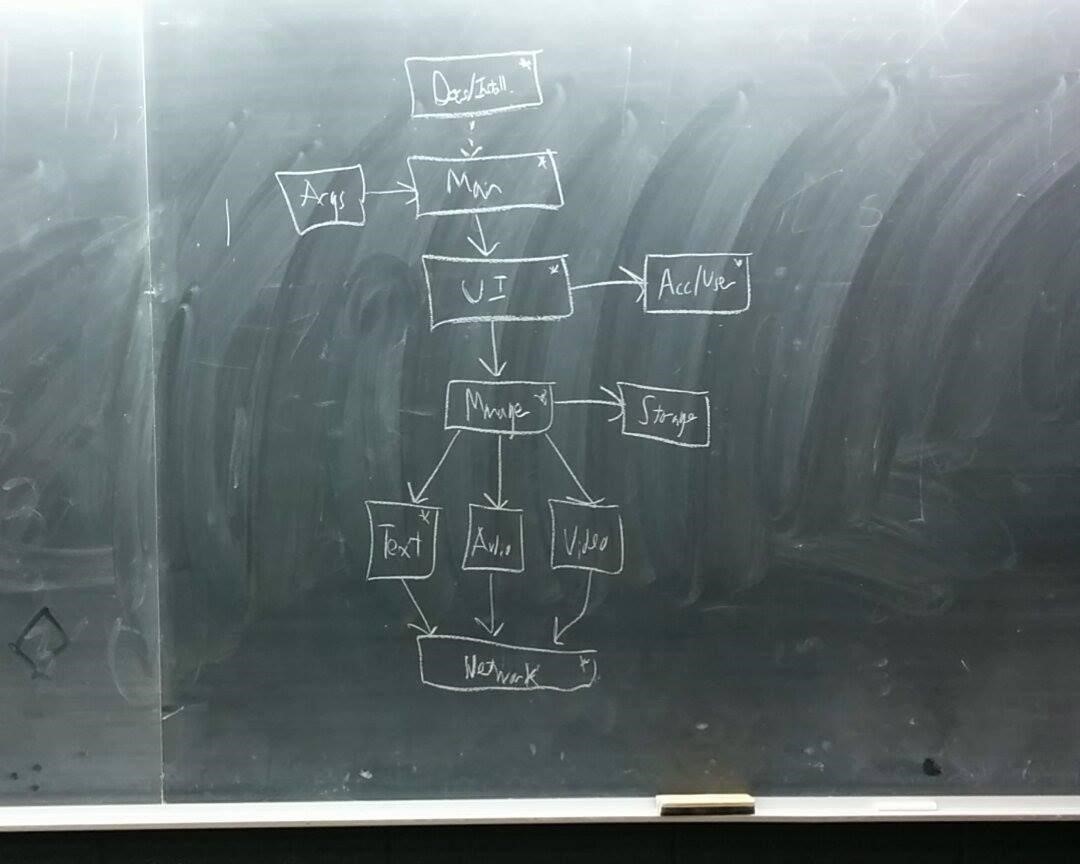 Docs/Install *
Args
Main *
UI *
Acc/User *
Manage *
Storage
Text *
Audio
Video
Network *